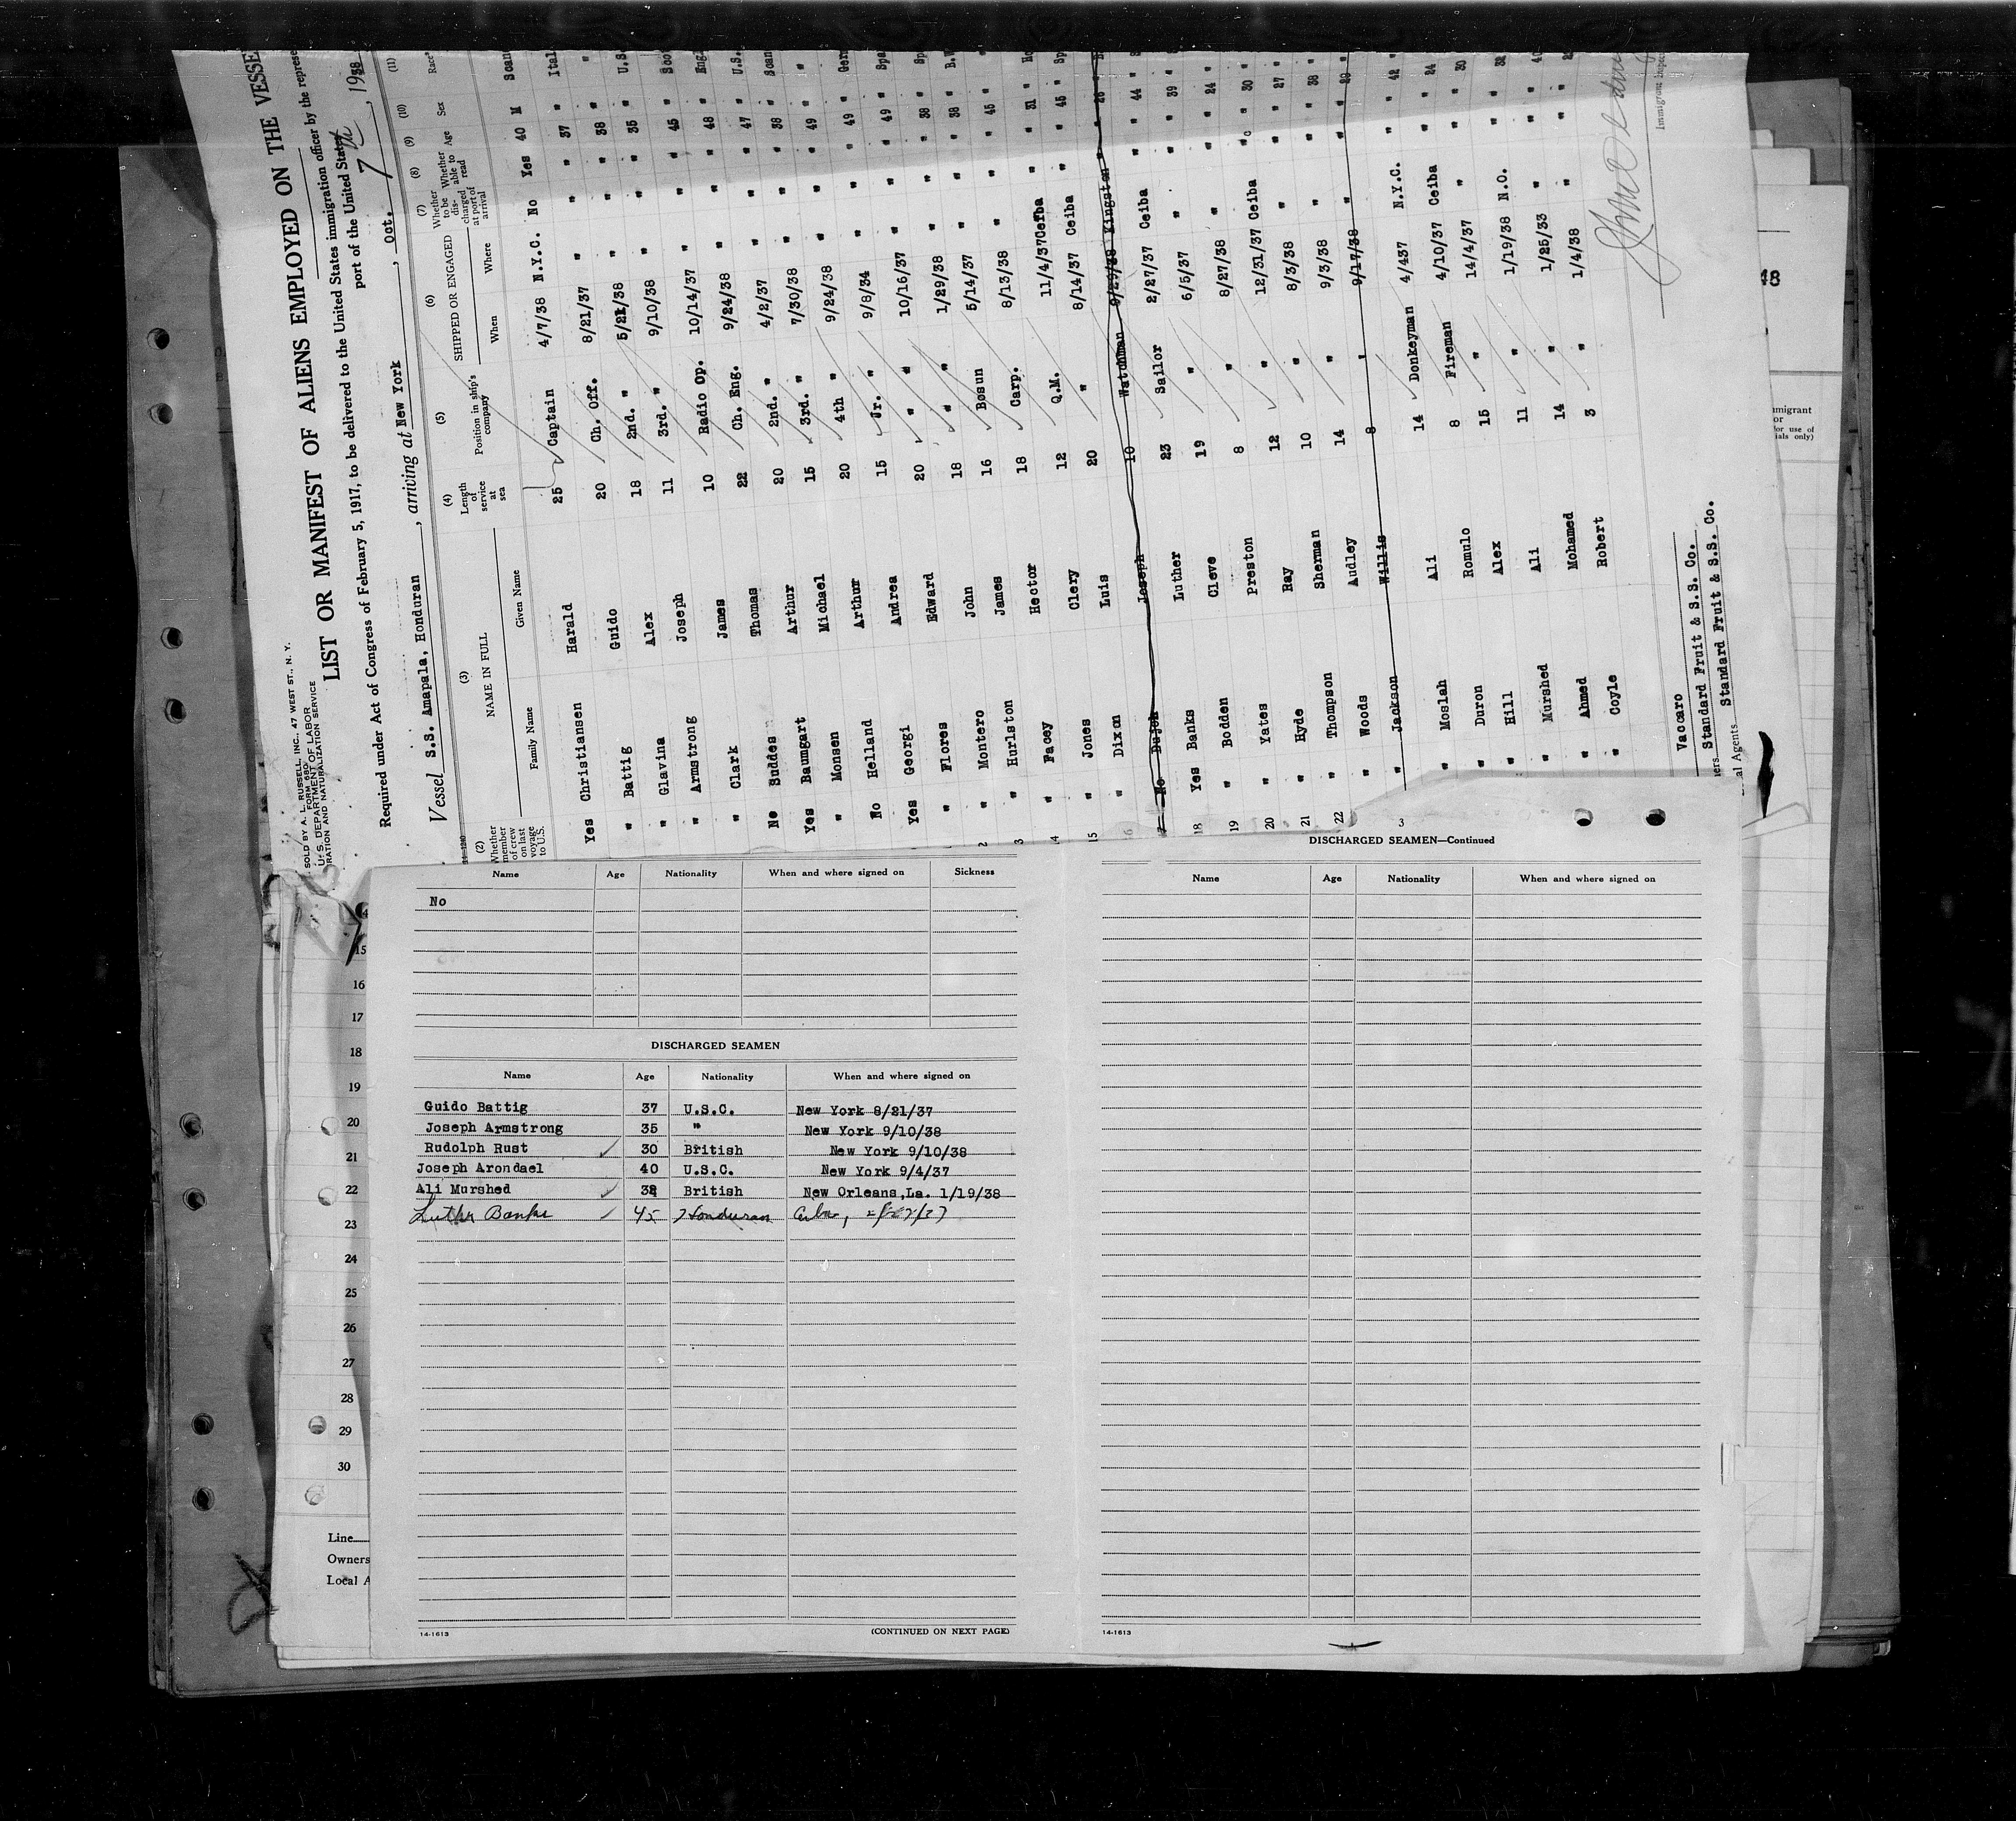 SOLD BY A. L. RUSSELL, INC., 47 WEST ST., N. Y.
FORM 680
U. S. DEPARTMENT OF LABOR
RATION AND NATURALIZATION SERVICE
LIST OR MANIFEST OF ALIENS EMPLOYED ON THE VESSE
Required under Act of Congress of February 5, 1917, to be delivered to the United States immigration officer by the represe
port of the United States
Vessel S.S. Amapala, Honduran, arriving at New York, Oct. 7th, 1938
(2) (3) (4) (5) (6) (7) (8) (9) (10) (11)
Whether member of crew on last voyage to U.S. NAME IN FULL Length of service at sea Position in ship's company SHIPPED OR ENGAGED Whether to be discharged at port of arrival Whether able to read Age Sex Race
Family Name Given Name When Where
Yes Christiansen Harald 25 Captain 4/7/38 N.Y.C. No Yes 40 M Scan
" Battig Guido 20 Ch. Off. 8/21/37 " " " 37 " Ital
" Glavina Alex 18 2nd. " 5/21/38 " " " 38 " "
" Armstrong Joseph 11 3rd. " 9/10/38 " " " 35 " U.S.
" Clark James 10 Radio Op. 10/14/37 " " " 45 " Sco
No Suddes Thomas 22 Ch. Eng. 9/24/38 " " " 48 " Eng
Yes Baumgart Arthur 20 2nd. " 4/2/37 " " " 47 " U.S.
" Monsen Michael 15 3rd. " 7/30/38 " " " 38 " Scan
No Helland Arthur 20 4th " 9/24/38 " " " 49 " "
Yes Georgi Andrea 15 Jr. " 9/8/34 " " " 49 " Ger
" Flores Edward 20 " " 10/16/37 " " " 49 " Spa
" Montero John 18 " " 1/29/38 " " " 38 " Sp
" Hurlston James 16 Bosun 5/14/37 " " " 38 " B.W
" Facey Hector 18 Carp. 8/13/38 " " " 45 " "
" Jones Clery 12 Q.M. 11/4/37 Ceiba " " 31 "
" Dixon Luis 20 " 8/14/37 Ceiba " " 45 " Sp
No Dujon Joseph 10 Watchman 9/29/38 Kingston " " 26 "
18 Yes Banks Luther 23 Sailor 2/27/37 Ceiba " " 44 "
19 " Bodden Cleve 19 " 6/5/37 " " " 39 "
20 " Yates Preston 8 " 8/27/38 " " " 24 "
21 " Hyde Ray 12 " 12/31/37 Ceiba " " 30 "
22 " Thompson Sherman 10 " 8/3/38 " " " 27 "
" Woods Audley 14 " 9/3/38 " " " 38 "
" Jackson Willis 8 " 9/17/38 " " " 29 "
" Moslah Ali 14 Donkeyman 4/437 N.Y.C. " " 42 "
" Duron Romulo 8 Fireman 4/10/37 Ceiba " " 24 "
" Hill Alex 15 " 14/4/37 " " " 30 "
" Murshed Ali 11 " 1/19/38 N.O. " "
" Ahmed Mohamed 14 " 1/25/33 " " "
" Coyle Robert 3 " 1/4/38 " " "
Vaccaro
Standard Fruit & S.S. Co.
al Agents Standard Fruit & S.S. Co.
Immigrant Inspec
48
Name Age Nationality When and where signed on Sickness
No
DISCHARGED SEAMEN
Name Age Nationality When and where signed on
Guido Battig 37 U.S.C. New York 8/21/37
Joseph Armstrong 35 " New York 9/10/38
Rudolph Rust 30 British New York 9/10/38
Joseph Arondael 40 U.S.C. New York 9/4/37
Ali Murshed 38 British New Orleans,La. 1/19/38
Luther Banks 45 Honduran Ceiba,
14-1613 (CONTINUED ON NEXT PAGE)
DISCHARGED SEAMEN—Continued
Name Age Nationality When and where signed on
14-1613
15
16
17
18
19
20
21
22
23
24
25
26
27
28
29
30
Line
Owners
Local A